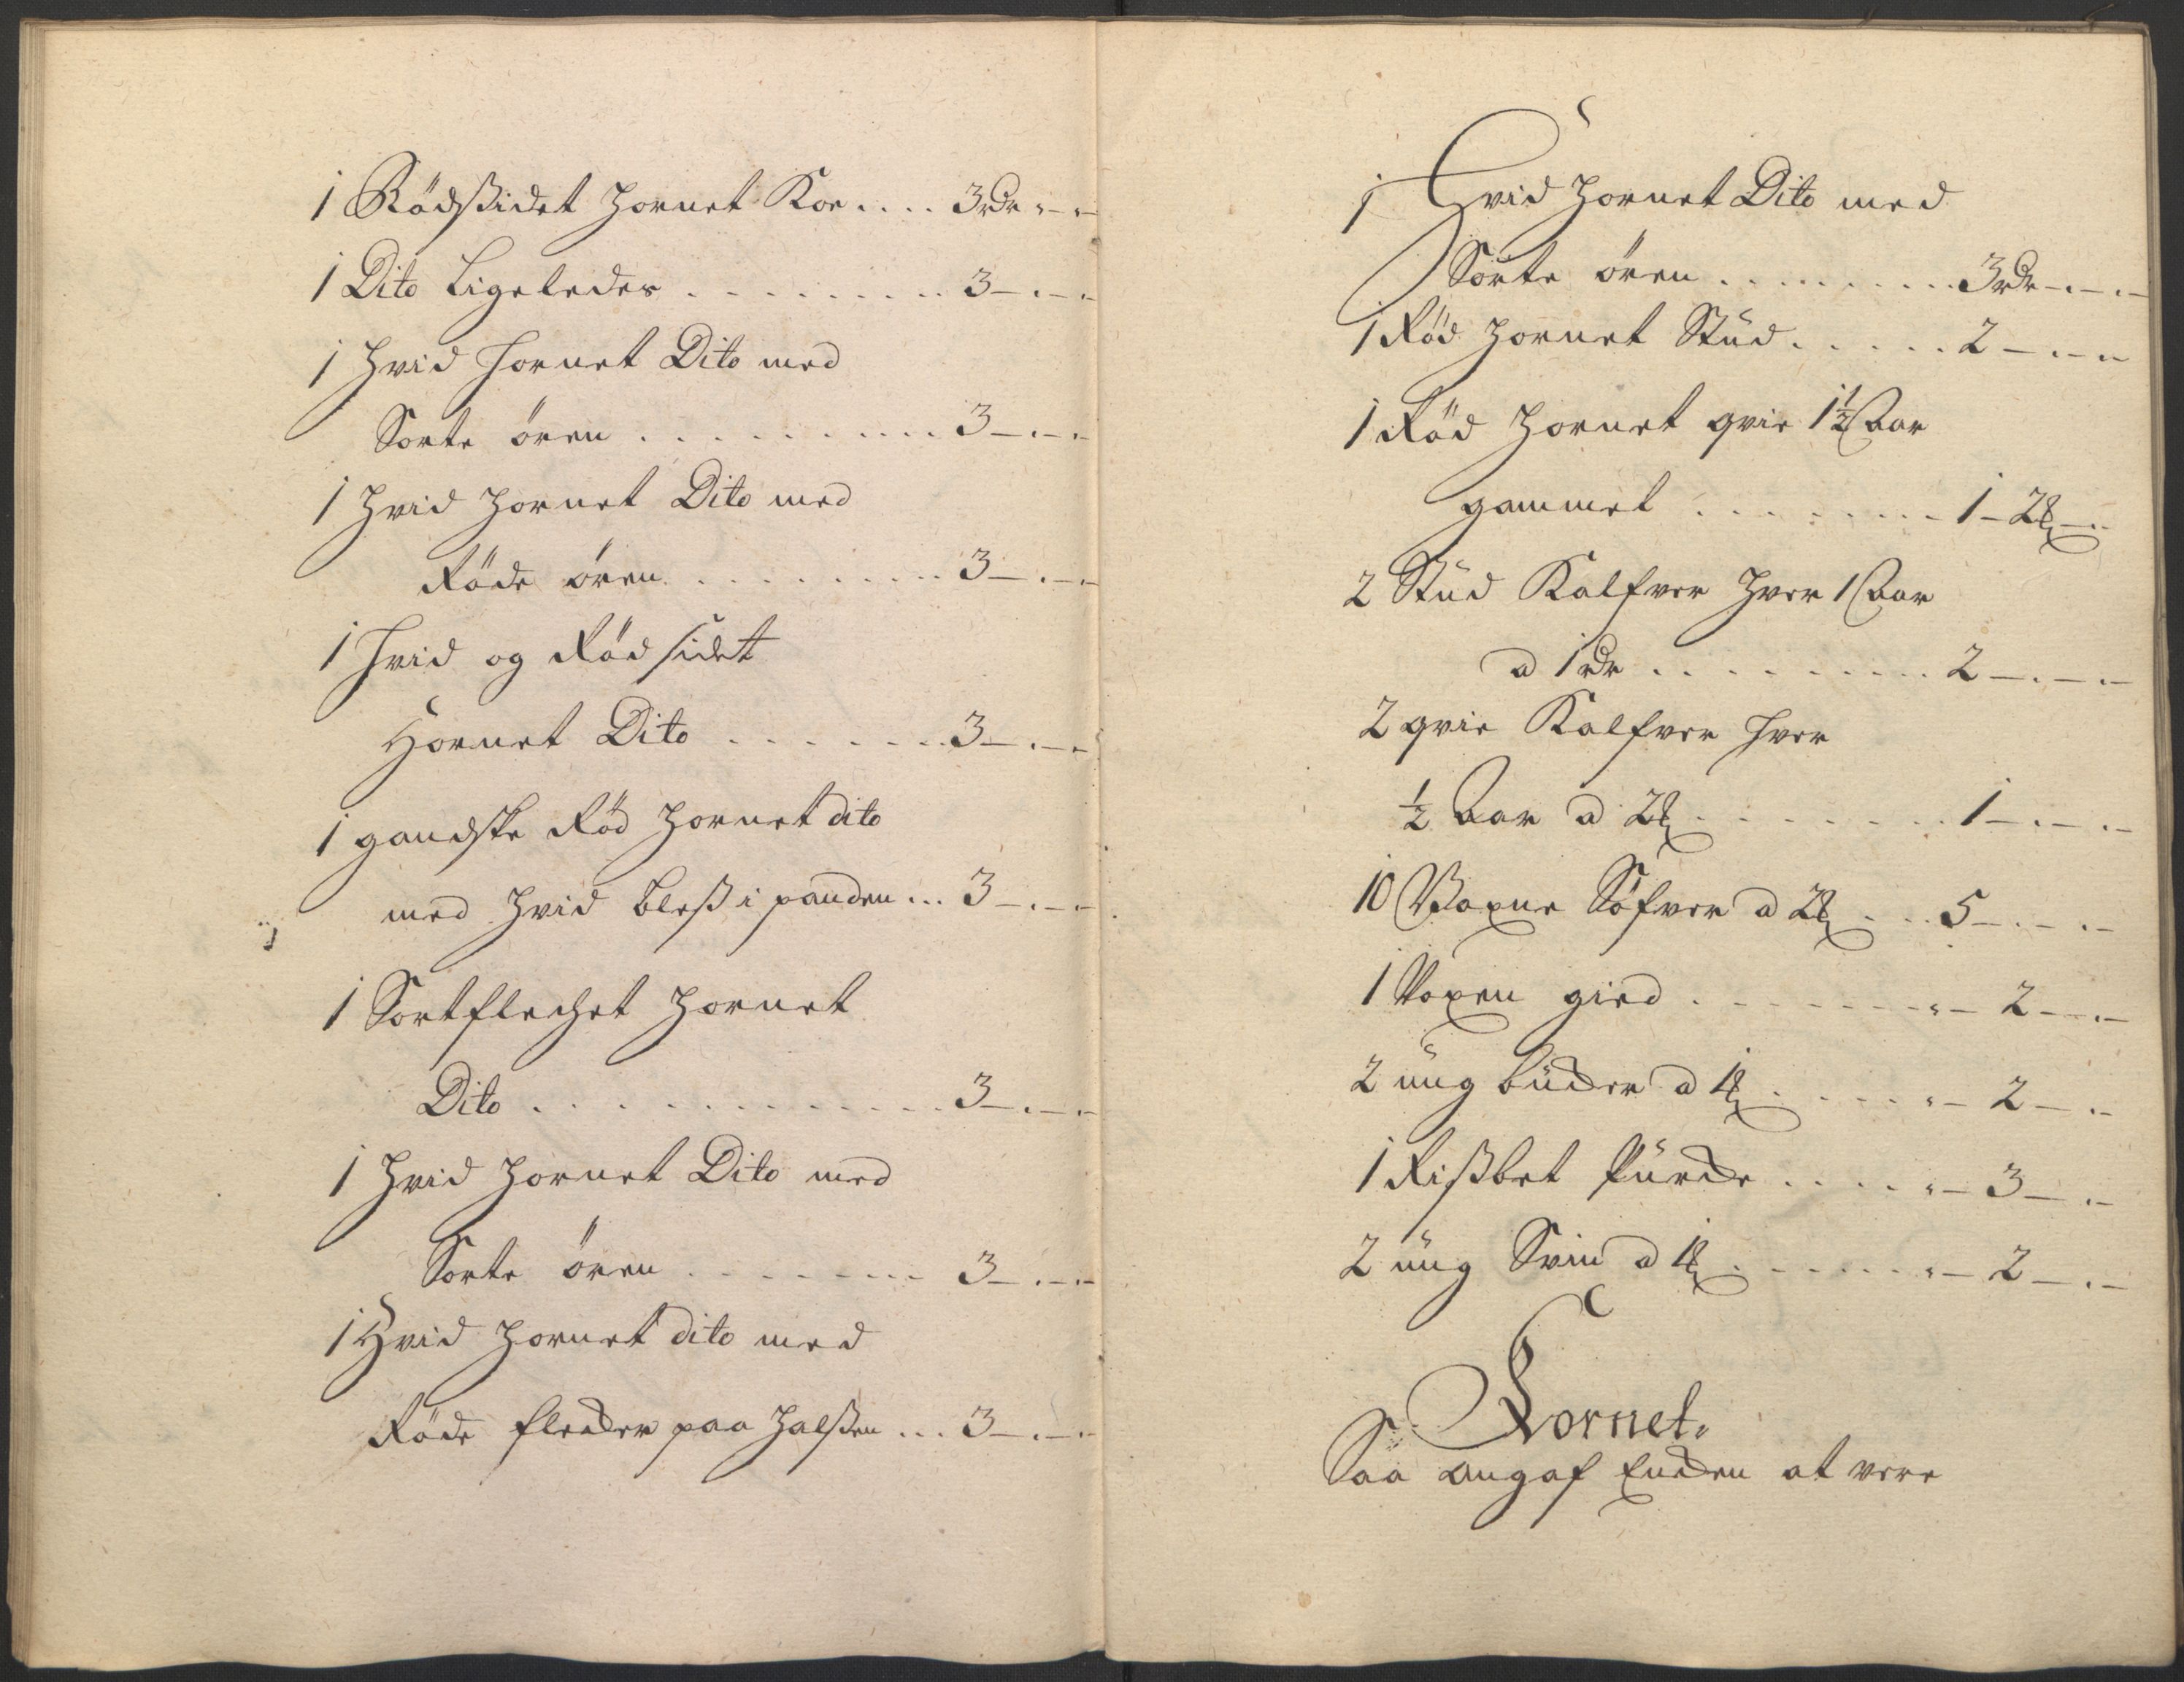 1 Rödsidet hornet Koe .... 3 rdr - -
1 Dito Ligeledes ......... 3 - . - -
1 hvid hornet Dito med
Sorte ören .......... 3 - . - -
1 hvid hornet Dito med
Röde ören ......... 3 - . - -
1 hvid og Rödsidet
Hornet Dito ....... 3 - . - -
1 gandske Röd hornet dito
med hvid bless i panden ... 3 - . - -
1 Sortflechet hornet
Dito ............. 3 - . - -
1 hvid hornet Dito med
Sorte ören ........ 3 - . - -
1 Hvid hornet dito med
Röde flecker paa halsen ... 3 - . - -
1 Hvid hornet Dito med
Sorte ören ......... 3 rdr - . - . -
1 Röd hornet Stud ..... 2 - . - -
1 Röd hornet qvie 1½ Aar
gammel ........ 1 - 2 ℔ - . -
2 Stud Kalfver hver 1 Aar
a 1 rdr ......... 2 - . - . -
2 qvie Kalfver hver
½ Aar a 2 ℔ ........ 1 - . - . -
10 Voxne Söfver a 2 ℔ ... 5 - . - . -
1 Voxen gied ........ - 2 - . -
2 ung bucker a 1 ℔ ..... - 2 - . -
1 .... - 3 - . -
2 ung Svin a 1 ℔ ...... - 2 - . -
Kornet.
Saa angaf Encken at vere